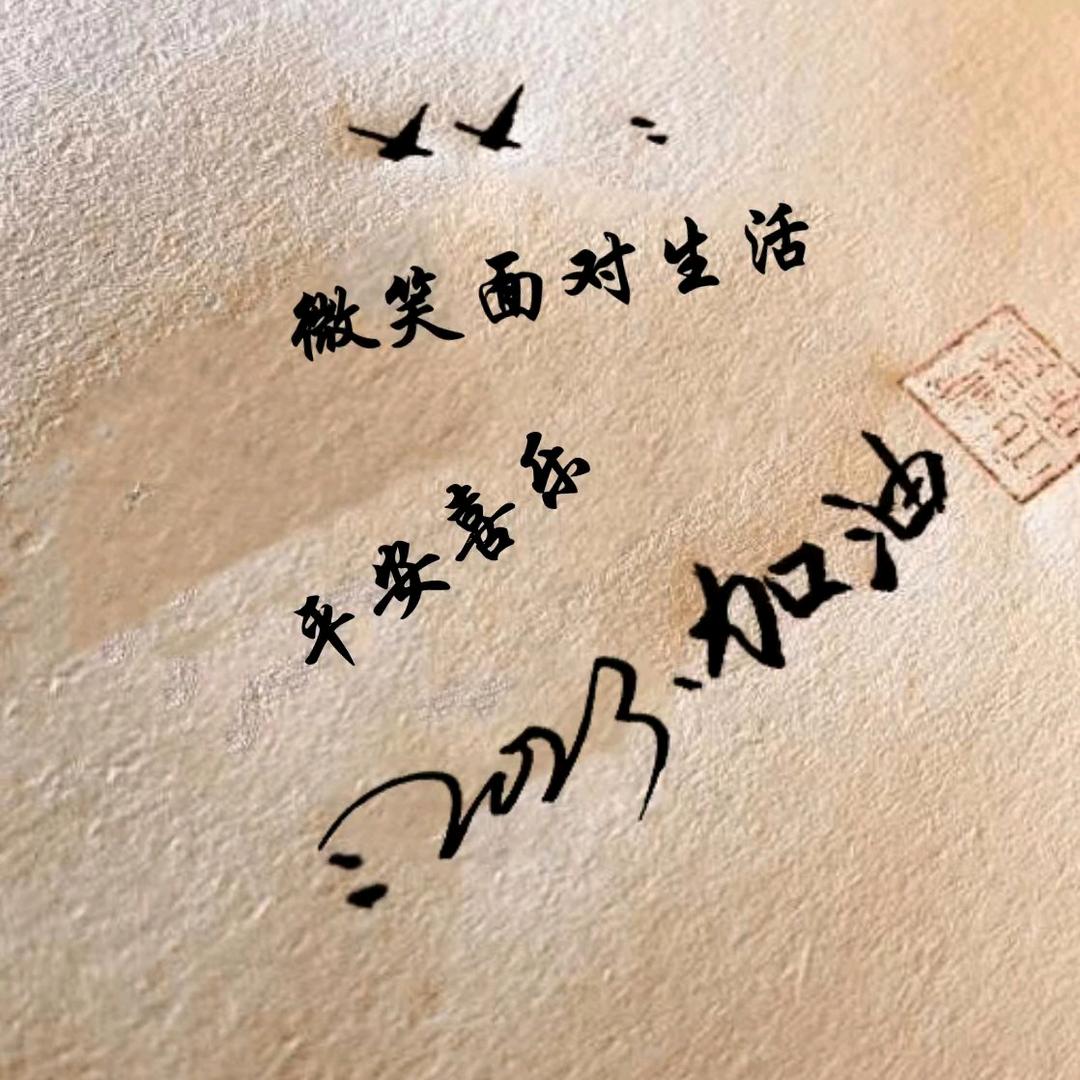 微笑面对生活
平安喜乐
2023加油